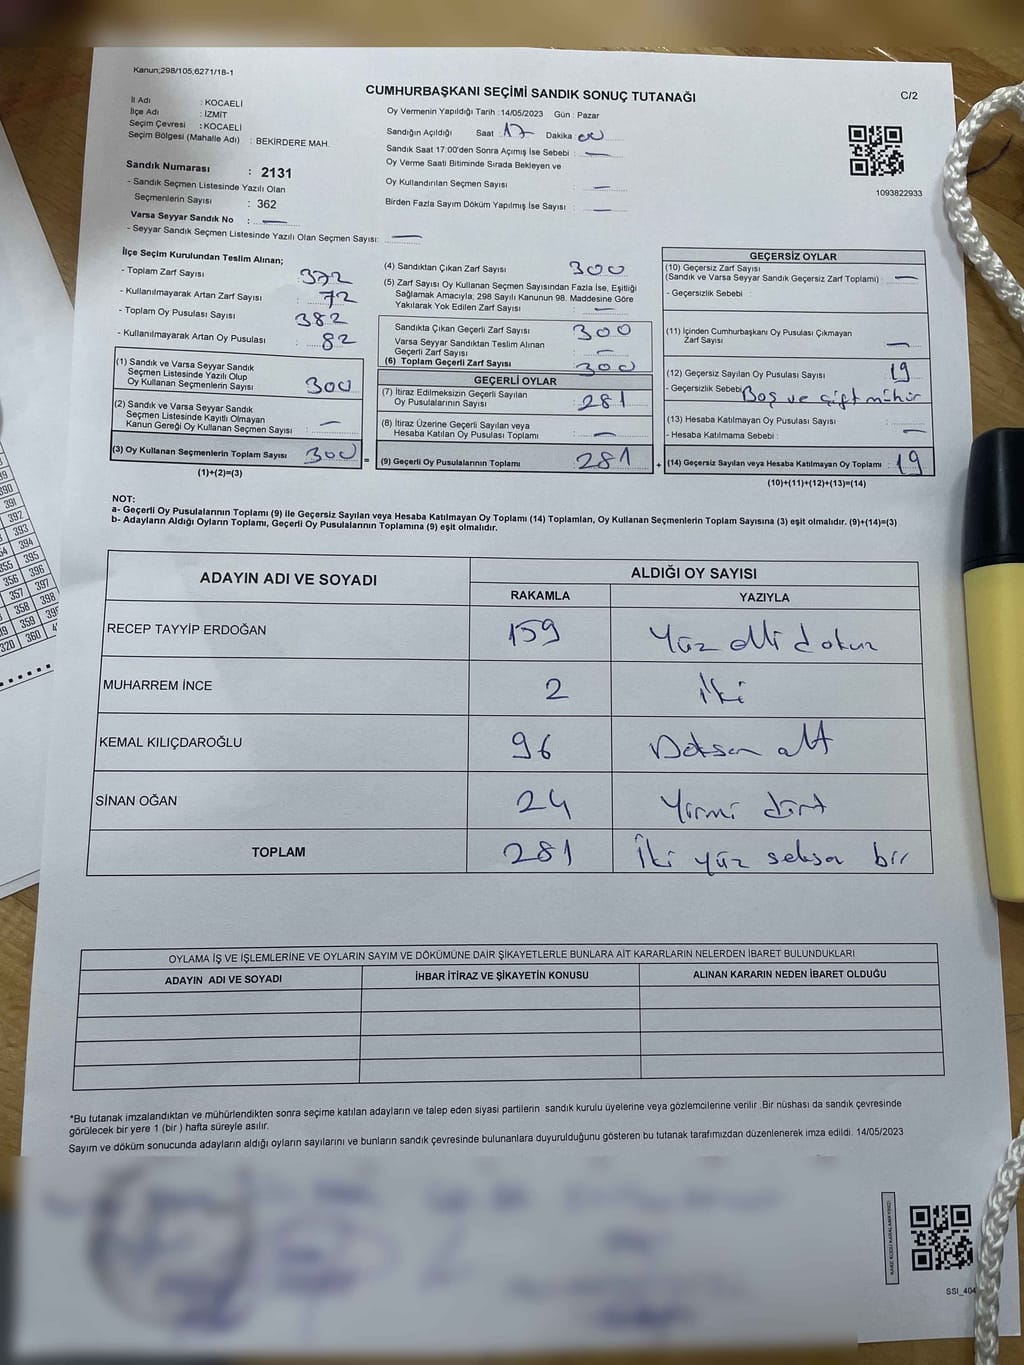 Kanun;298/105;6271/18-1
CUMHURBAŞKANI SEÇİMİ SANDIK SONUÇ TUTANAĞI
C/2
İl Adı : KOCAELİ
İlçe Adı : İZMİT
Seçim Çevresi : KOCAELİ
Seçim Bölgesi (Mahalle Adı) : BEKİRDERE MAH.
Sandık Numarası : 2131
- Sandık Seçmen Listesinde Yazılı Olan
Seçmenlerin Sayısı : 362
Varsa Seyyar Sandık No : —
- Seyyar Sandık Seçmen Listesinde Yazılı Olan Seçmen Sayısı: —
Oy Vermenin Yapıldığı Tarih : 14/05/2023 Gün : Pazar
Sandığın Açıldığı Saat : 17 Dakika : 00
Sandık Saat 17:00'den Sonra Açımış İse Sebebi : —
Oy Verme Saati Bitiminde Sırada Bekleyen ve
Oy Kullandırılan Seçmen Sayısı : —
Birden Fazla Sayım Döküm Yapılmış İse Sayısı : —
1093822933
İlçe Seçim Kurulundan Teslim Alınan;
- Toplam Zarf Sayısı : 372
- Kullanılmayarak Artan Zarf Sayısı : 72
- Toplam Oy Pusulası Sayısı : 382
- Kullanılmayarak Artan Oy Pusulası : 82
(1) Sandık ve Varsa Seyyar Sandık
Seçmen Listesinde Yazılı Olup
Oy Kullanan Seçmenlerin Sayısı : 300
(2) Sandık ve Varsa Seyyar Sandık
Seçmen Listesinde Kayıtlı Olmayan
Kanun Gereği Oy Kullanan Seçmen Sayısı : —
(3) Oy Kullanan Seçmenlerin Toplam Sayısı : 300 =
(1)+(2)=(3)
(4) Sandıktan Çıkan Zarf Sayısı : 300
(5) Zarf Sayısı Oy Kullanan Seçmen Sayısından Fazla İse, Eşitliği
Sağlamak Amacıyla; 298 Sayılı Kanunun 98. Maddesine Göre
Yakılarak Yok Edilen Zarf Sayısı : —
Sandıkta Çıkan Geçerli Zarf Sayısı : 300
Varsa Seyyar Sandıktan Teslim Alınan
Geçerli Zarf Sayısı : —
(6) Toplam Geçerli Zarf Sayısı : 300
GEÇERLİ OYLAR
(7) İtiraz Edilmeksizin Geçerli Sayılan
Oy Pusulalarının Sayısı : 281
(8) İtiraz Üzerine Geçerli Sayılan veya
Hesaba Katılan Oy Pusulası Toplamı : —
(9) Geçerli Oy Pusulalarının Toplamı : 281 +
GEÇERSİZ OYLAR
(10) Geçersiz Zarf Sayısı
(Sandık ve Varsa Seyyar Sandık Geçersiz Zarf Toplamı) : —
- Geçersizlik Sebebi :
(11) İçinden Cumhurbaşkanı Oy Pusulası Çıkmayan
Zarf Sayısı : —
(12) Geçersiz Sayılan Oy Pusulası Sayısı : 19
- Geçersizlik Sebebi : Boş ve çift mühür
(13) Hesaba Katılmayan Oy Pusulası Sayısı :
- Hesaba Katılmama Sebebi : —
(14) Geçersiz Sayılan veya Hesaba Katılmayan Oy Toplamı : 19
(10)+(11)+(12)+(13)=(14)
NOT:
a- Geçerli Oy Pusulalarının Toplamı (9) ile Geçersiz Sayılan veya Hesaba Katılmayan Oy Toplamı (14) Toplamları, Oy Kullanan Seçmenlerin Toplam Sayısına (3) eşit olmalıdır. (9)+(14)=(3)
b- Adayların Aldığı Oyların Toplamı, Geçerli Oy Pusulalarının Toplamına (9) eşit olmalıdır.
ADAYIN ADI VE SOYADI ALDIĞI OY SAYISI
RAKAMLA YAZIYLA
RECEP TAYYİP ERDOĞAN 159 Yüz elli dokuz
MUHARREM İNCE 2 İki
KEMAL KILIÇDAROĞLU 96 Doksan altı
SİNAN OĞAN 24 Yirmi dört
TOPLAM 281 İki yüz seksen bir
OYLAMA İŞ VE İŞLEMLERİNE VE OYLARIN SAYIM VE DÖKÜMÜNE DAİR ŞİKAYETLERLE BUNLARA AİT KARARLARIN NELERDEN İBARET BULUNDUKLARI
ADAYIN ADI VE SOYADI İHBAR İTİRAZ VE ŞİKAYETİN KONUSU ALINAN KARARIN NEDEN İBARET OLDUĞU
*Bu tutanak imzalandıktan ve mühürlendikten sonra seçime katılan adayların ve talep eden siyasi partilerin sandık kurulu üyelerine veya gözlemcilerine verilir .Bir nüshası da sandık çevresinde
görülecek bir yere 1 (bir ) hafta süreyle asılır.
Sayım ve döküm sonucunda adayların aldığı oyların sayılarını ve bunların sandık çevresinde bulunanlara duyurulduğunu gösteren bu tutanak tarafımızdan düzenlenerek imza edildi. 14/05/2023
SSI_404